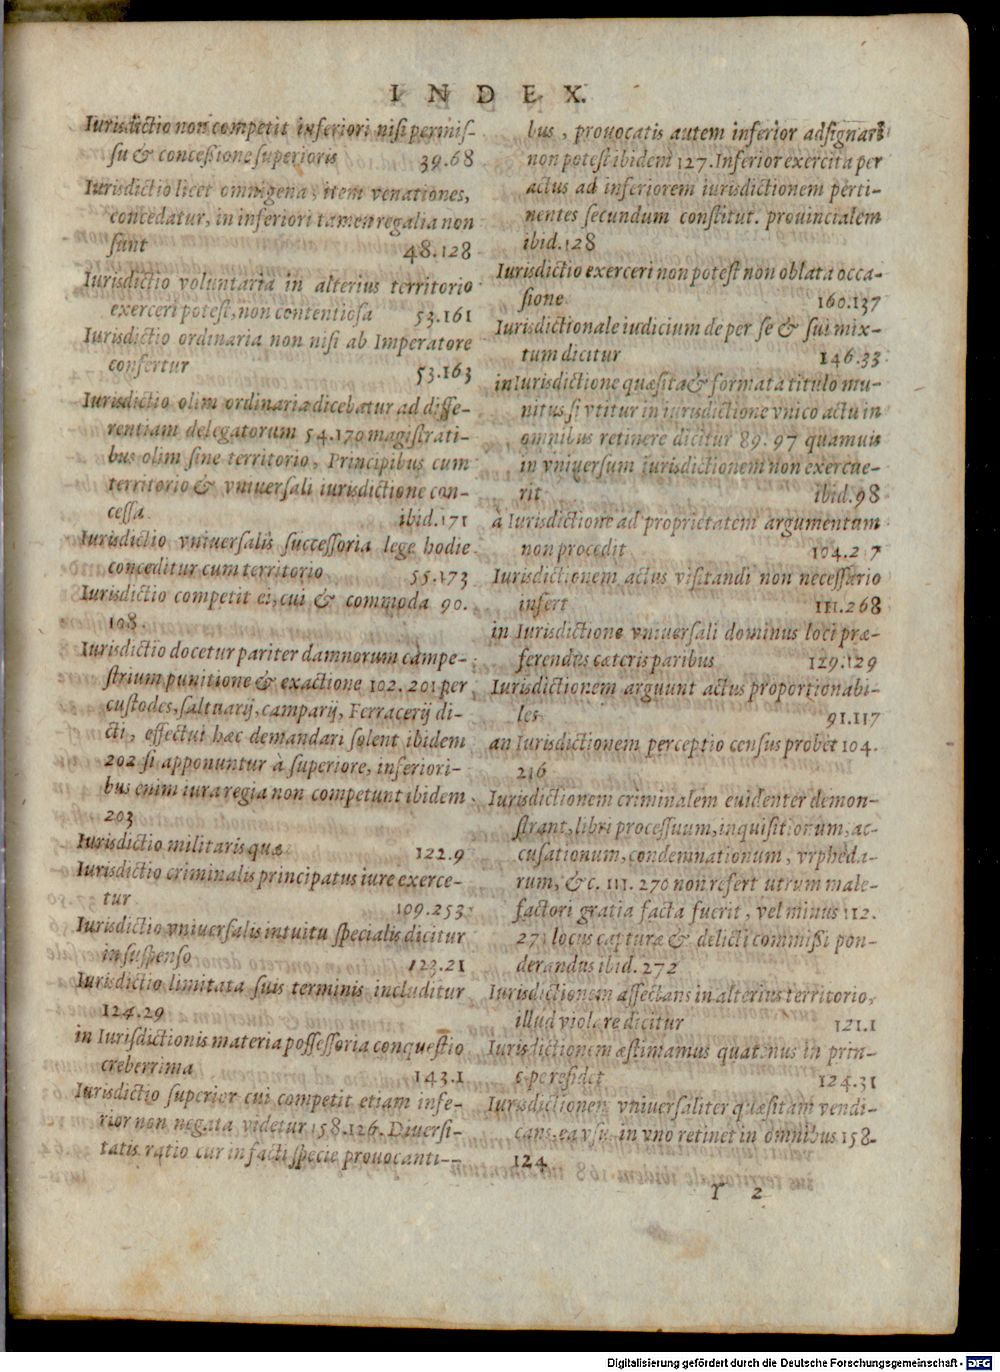 INDEX.
Iurisdictio non competit inferiori nisi permis-
su & concessione superioris 39.68
Iurisdictio licet omnigena, item venationes,
concedatur, in inferiori tamen regalia non
sunt 48.128
Iurisdictio voluntaria in alterius territorio
exerceri potest, non contentiosa 53.161
Iurisdictio ordinaria non nisi ab Imperatore
confertur 53.163
Iurisdictio olim ordinaria dicebatur ad diffe-
rentiam delegatorum 54.170 magistrati-
bus olim sine territorio, Principibus cum
territorio & vniuersali iurisdictione con-
cessa ibid.171
Iurisdictio vniuersalis successoria lege hodie
conceditur cum territorio 55.173
Iurisdictio competit ei, cui & commoda 90.
108.
Iurisdictio docetur pariter damnorum campe-
strium punitione & exactione 102.201 per
custodes, saltuarij, camparij, Ferracerij di-
cti, effectui hæc demandari solent ibidem
202 si apponuntur à superiore, inferiori-
bus enim iura regia non competunt ibidem
203
Iurisdictio militaris quæ 122.9
Iurisdictio criminalis principatus iure exerce-
tur 109.253
Iurisdictio vniuersalis intuitu specialis dicitur
in suspenso 123.21
Iurisdictio limitata suis terminis includitur
124.29
in Iurisdictionis materia possessoria conquestio
creberrima 143.1
Iurisdictio superior cui competit etiam infe-
rior non negata videtur 158.126. Diuersi-
tatis ratio cur in facti specie prouocanti-
bus, prouocatis autem inferior adsignari
non potest ibidem 127. Inferior exercita per
actus ad inferiorem iurisdictionem perti-
nentes secundum constitut. prouincialem
ibid.128
Iurisdictio exerceri non potest non oblata occa-
sione 160.137
Iurisdictionale iudicium de per se & sui mix-
tum dicitur 146.33
in Iurisdictione quæsita & formata titulo mu-
nitus si vtitur in iurisdictione vnico actu in
omnibus retinere dicitur 89.97 quamuis
in vniuersum iurisdictionem non exercue-
rit ibid.98
à Iurisdictione ad proprietatem argumentum
non procedit 104.217
Iurisdictionem actus visitandi non necessario
infert 111.268
in Iurisdictione vniuersali dominus loci præ-
ferendus cæteris paribus 129.129
Iurisdictionem arguunt actus proportionabi-
les 91.117
an Iurisdictionem perceptio census probet 104.
216
Iurisdictionem criminalem euidenter demon-
strant, libri processuum, inquisitionum, ac-
cusationum, condemnationum, vrpheda-
rum, &c. 111.270 non refert utrum male-
factori gratia facta fuerit, vel minus 112.
271 locus capturæ & delicti commissi pon-
derandus ibid.272
Iurisdictionem affectans in alterius territorio,
illud violare dicitur 121.1
Iurisdictionem æstimamus quatenus in prin-
cipe residet 124.31
Iurisdictionem vniuersaliter quæsitam vendi-
cans, ea vsu in vno retinet in omnibus 158.
124
Y 2
Digitalisierung gefördert durch die Deutsche Forschungsgemeinschaft - DFG